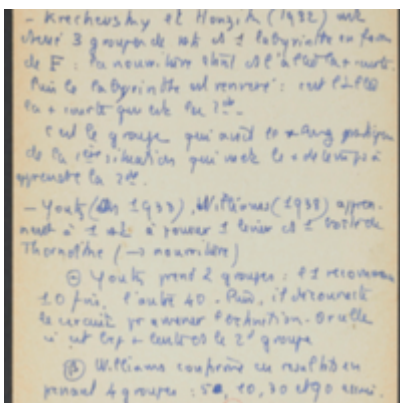 - Krechevsky et Honzik (1932) ont
3 groupes de rats ds 1 labyrinthe en forme
de F : la nourriture étant ds l'allée la + courte.
Puis le labyrinthe est renversé : c'est l'allée
la + courte qui est la 2de.
C'est le groupe qui avait la + long pratique
de la 1ère situation qui met le + de temps à
apprendre la 2de.
- Youtz (en 1938), Williams (1938) appren-
nent à 1 rat à pousser 1 levier ds 1 boîte de
Thorndike (→ nourriture)
Youtz prend 2 groupes : l'1 recevra
10 fois, l'autre 40. Puis, il déconnecte
le circuit pr amener l'extinction. Or elle
est bcp + lente ds le 2d groupe
Williams confirme ces résultats en
prenant 4 groupes : 5, 10, 30 et 90 essais.